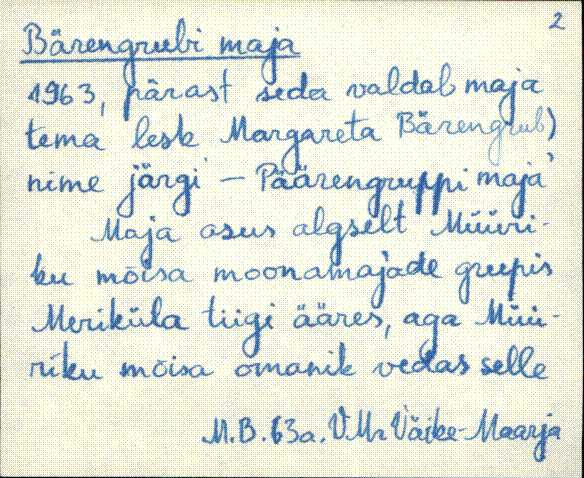 2
Bärengrubi maja
1963, pärast seda valdab maja
tema lesk Margareta Bärengrub)
nime järgi – Päärengruppi maja"
Maja asus algselt Müüri-
ku mõisa moonamajade grupis
Meriküla tiigi ääres, aga Müü-
riku mõisa omanik vedas selle
M.B. 63a. VMr Väike-Maarja